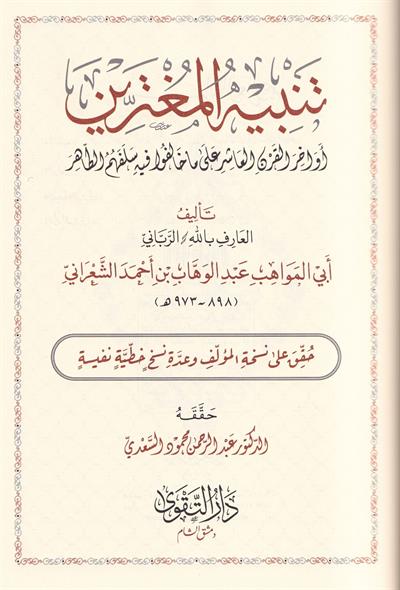 تنبيه المغترين
أواخر القرن العاشر على ما خالفوا فيه سلفهم الطاهر
تأليف
العارف بالله الرباني
أبي المواهب عبد الوهاب بن أحمد الشعراني
(٨٩٨-٩٧٣هـ)
حقق على نسخة المؤلف وعدة نسخ خطية نفيسة
حققه
الدكتور عبد الرحمن محمود السعدي
دار التقوى
دمشق الشام